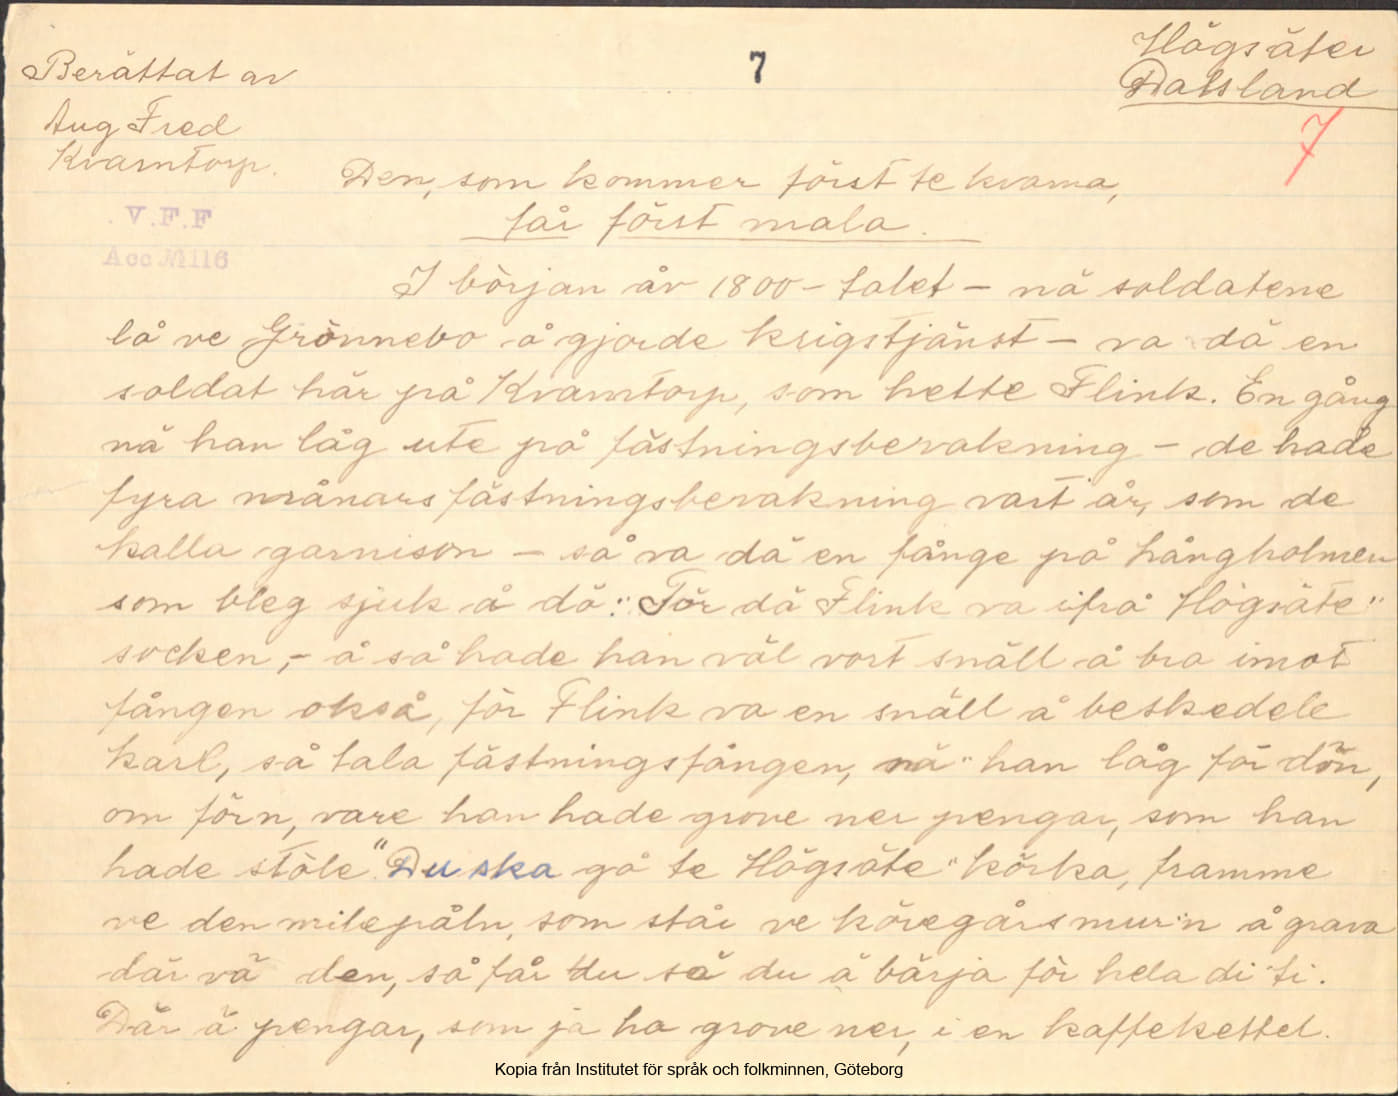 Högsäter
Dalsland
7
7
Berättat av
Aug Fred
Kvarntorp.
V.F.F
Acc № 116
Den, som kommer först te kvarna,
får först mala.
I början åv 1800-talet – nä soldatene
lå ve Grönnebo å gjorde krigstjänst – va dä en
soldat här på Kvarntorp, som hette Flink. En gång
nä han låg ute på fästningsbevakning – de hade
fyra månars fästningsbevakning vart år, som de
kalla garnison – så va dä en fånge på Långholmen
som bleg sjuk å dö. "För dä Flink va ifrå Högsäte"
socken, – å så hade han väl vort snäll å bra imot
fången okså, för Flink va en snäll å beskedele
karl, så tala fästningsfången, nä han låg för dön,
om förn, vare han hade grove ner pengar, som han
hade stöle. "Du ska gå te Högsäte" körka, framme
ve den milepåln, som står ve köregårsmur'n å grava
där vä den, så får du sä du ä bärja för hela di ti.
Där ä pengar, som ja ha grove ner, i en kaffekettel.
Kopia från Institutet för språk och folkminnen, Göteborg